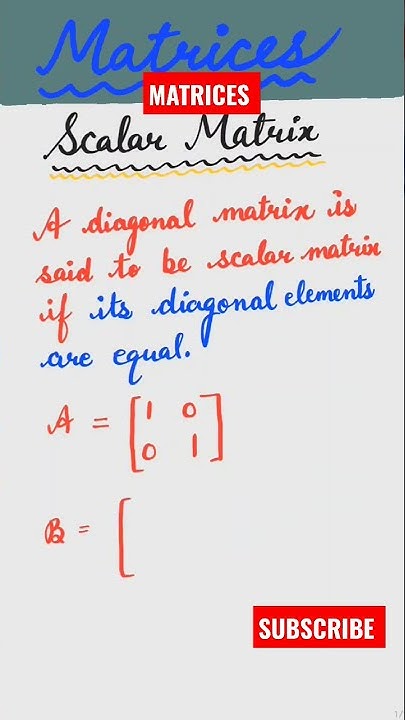 Matrices
MATRICES
Scalar Matrix
A diagonal matrix is
said to be scalar matrix
if its diagonal elements
are equal.
A = [1 0
0 1]
B = [
SUBSCRIBE
1/